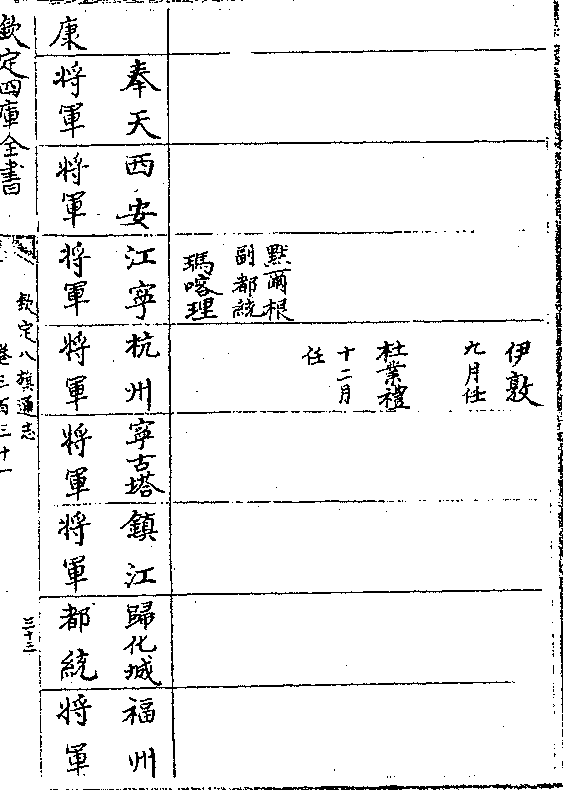 默爾根
副都統
瑪喀理
伊敦
九月任
杜業禮
十二月
任
康
奉天
將軍
西安
將軍
江寧
將軍
杭州
將軍
寧古塔
將軍
鎮江
將軍
歸化城
都統
福州
將軍
欽定四庫全書
欽定八旗通志
卷三百三十一
三十三